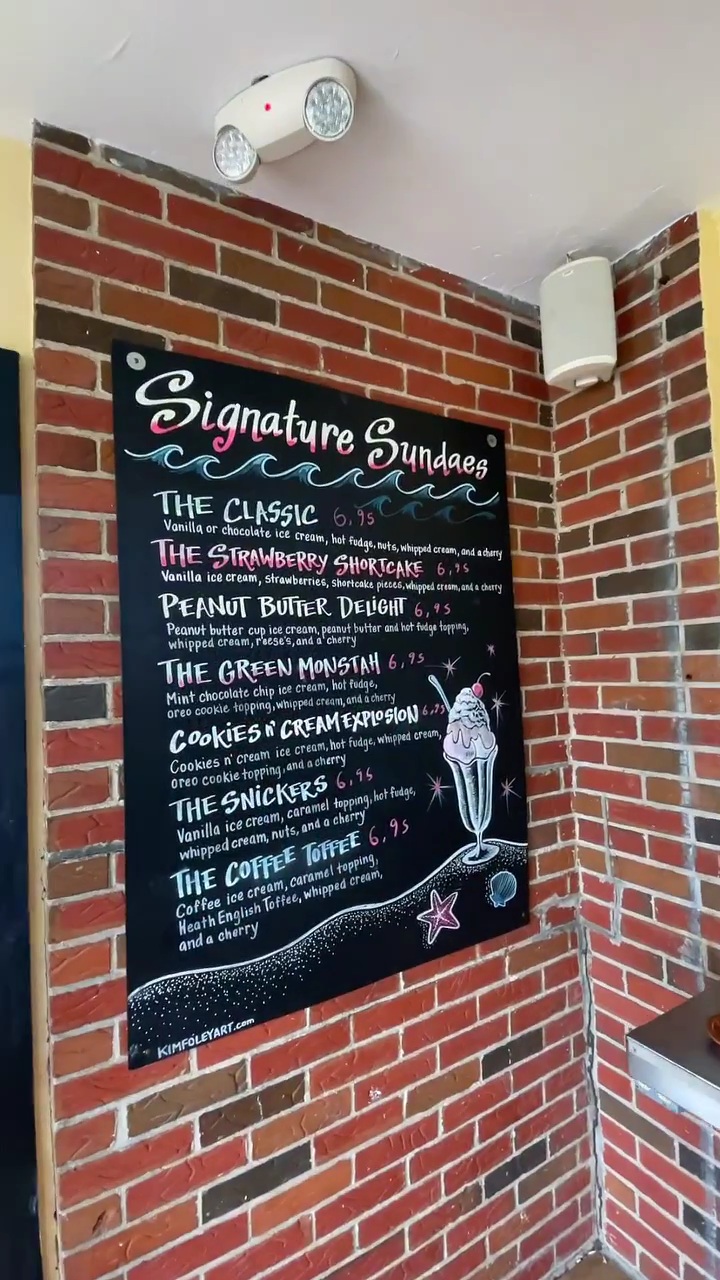 Signature Sundaes
THE CLASSIC 6.95
Vanilla or chocolate ice cream, hot fudge, nuts, whipped cream, and a cherry
THE STRAWBERRY SHORTCAKE 6.95
Vanilla ice cream, strawberries, shortcake pieces, whipped cream, and a cherry
PEANUT BUTTER DELIGHT 6.95
Peanut butter cup ice cream, peanut butter and hot fudge topping,
whipped cream, reese's, and a cherry
THE GREEN MONSTAH 6.95
Mint chocolate chip ice cream, hot fudge,
oreo cookie topping, whipped cream, and a cherry
COOKIES N' CREAM EXPLOSION 6.95
Cookies n' cream ice cream, hot fudge, whipped cream,
oreo cookie topping, and a cherry
THE SNICKERS 6.95
Vanilla ice cream, caramel topping, hot fudge,
whipped cream, nuts, and a cherry
THE COFFEE TOFFEE 6.95
Coffee ice cream, caramel topping,
Heath English Toffee, whipped cream,
and a cherry
KIMFOLEYART.com